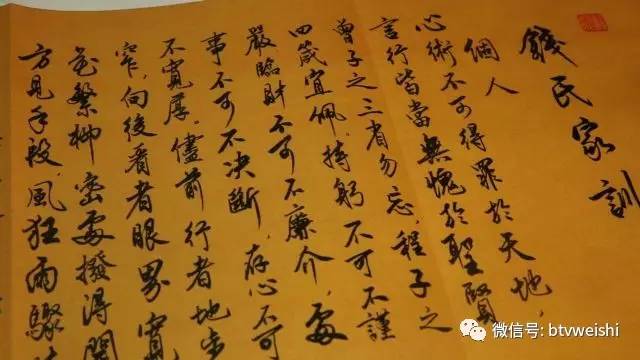 錢氏家訓
個人
心術不可得罪於天地，
言行皆當無愧於聖賢
曾子之三省勿忘，程子之
四箴宜佩，持躬不可不謹
嚴臨財不可不廉介，處
事不可不决斷，存心不可
不寬厚。儘前行者地步
窄，向後看者眼界寬
花繁柳密處撥得開
方見手段，風狂雨驟
微信号: btvweishi